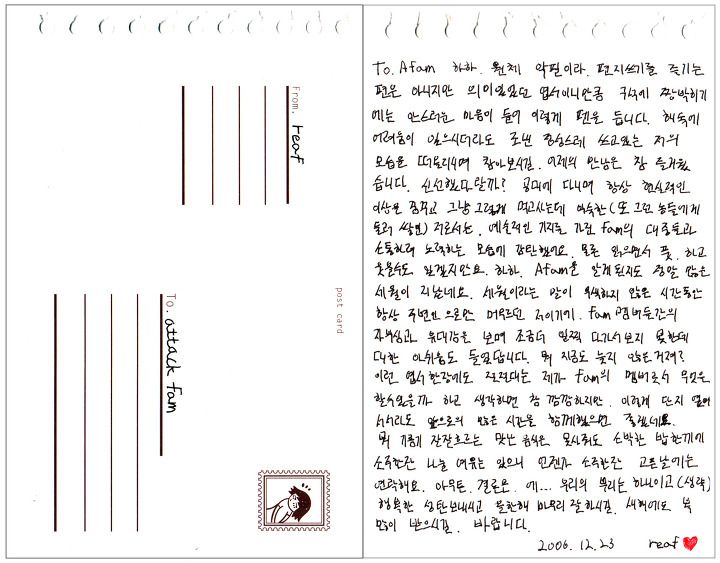 From. reaf
To. attack fam
post card
To. Afam 하하. 원체 악필이라. 편지쓰기를 즐기는
편은 아니지만 의미있었던 엽서이니만큼 구석에 짱박히기
에는 안스러운 마음이 들어 이렇게 펜을 듭니다. 해석에
어려움이 있으시더라도 조낸 정성스레 쓰고있는 저의
모습을 떠올리시며 참아보시길. 어제의 만남은 참 즐거웠
습니다. 신선했다랄까? 공대에 다니며 항상 현실적인
이상을 꿈꾸고 그냥 그렇게 먹고사는데 익숙한 (또 그런 놈들에게
둘러 쌓인) 저로서는. 예술적인 기질을 가진 fam의 대중들과
소통하려 노력하는 모습에 감탄했어요. 물론 읽으면서 풋. 하고
웃을수도 있겠지만요. 하하. Afam을 알게 된지도 정말 많은
세월이 지났네요. 세월이라는 말이 무색하지 않은 시간동안
항상 주변인으로만 머무르던 저이기에. fam 멤버들간의
자부심과 유대감을 보며 조금더 일찍 다가서보지 못한데
대한 아쉬움도 들었답니다. 뭐 지금도 늦지 않은거려?
이런 엽서한장에도 절절대는 제가 fam의 멤버로서 무엇을
할수있을까 하고 생각하면 참 깜깜하지만. 이렇게 단지
앞으로의 많은 시간을 함께했으면 좋겠네요.
뭐 기름기 잘잘흐르는 맛난 음식은 못사줘도 소박한 밥한끼에
소주한잔 나눌 여유는 있으니 언젠가 소주한잔 고픈날에는
연락해요. 아무튼. 결론은. 에... 우리의 뿌리는 하나이고 (생략)
행복한 성탄보내시고 올한해 마무리 잘하시길. 새해에도 복
많이 받으시길. 바랍니다.
2006. 12. 23 reaf